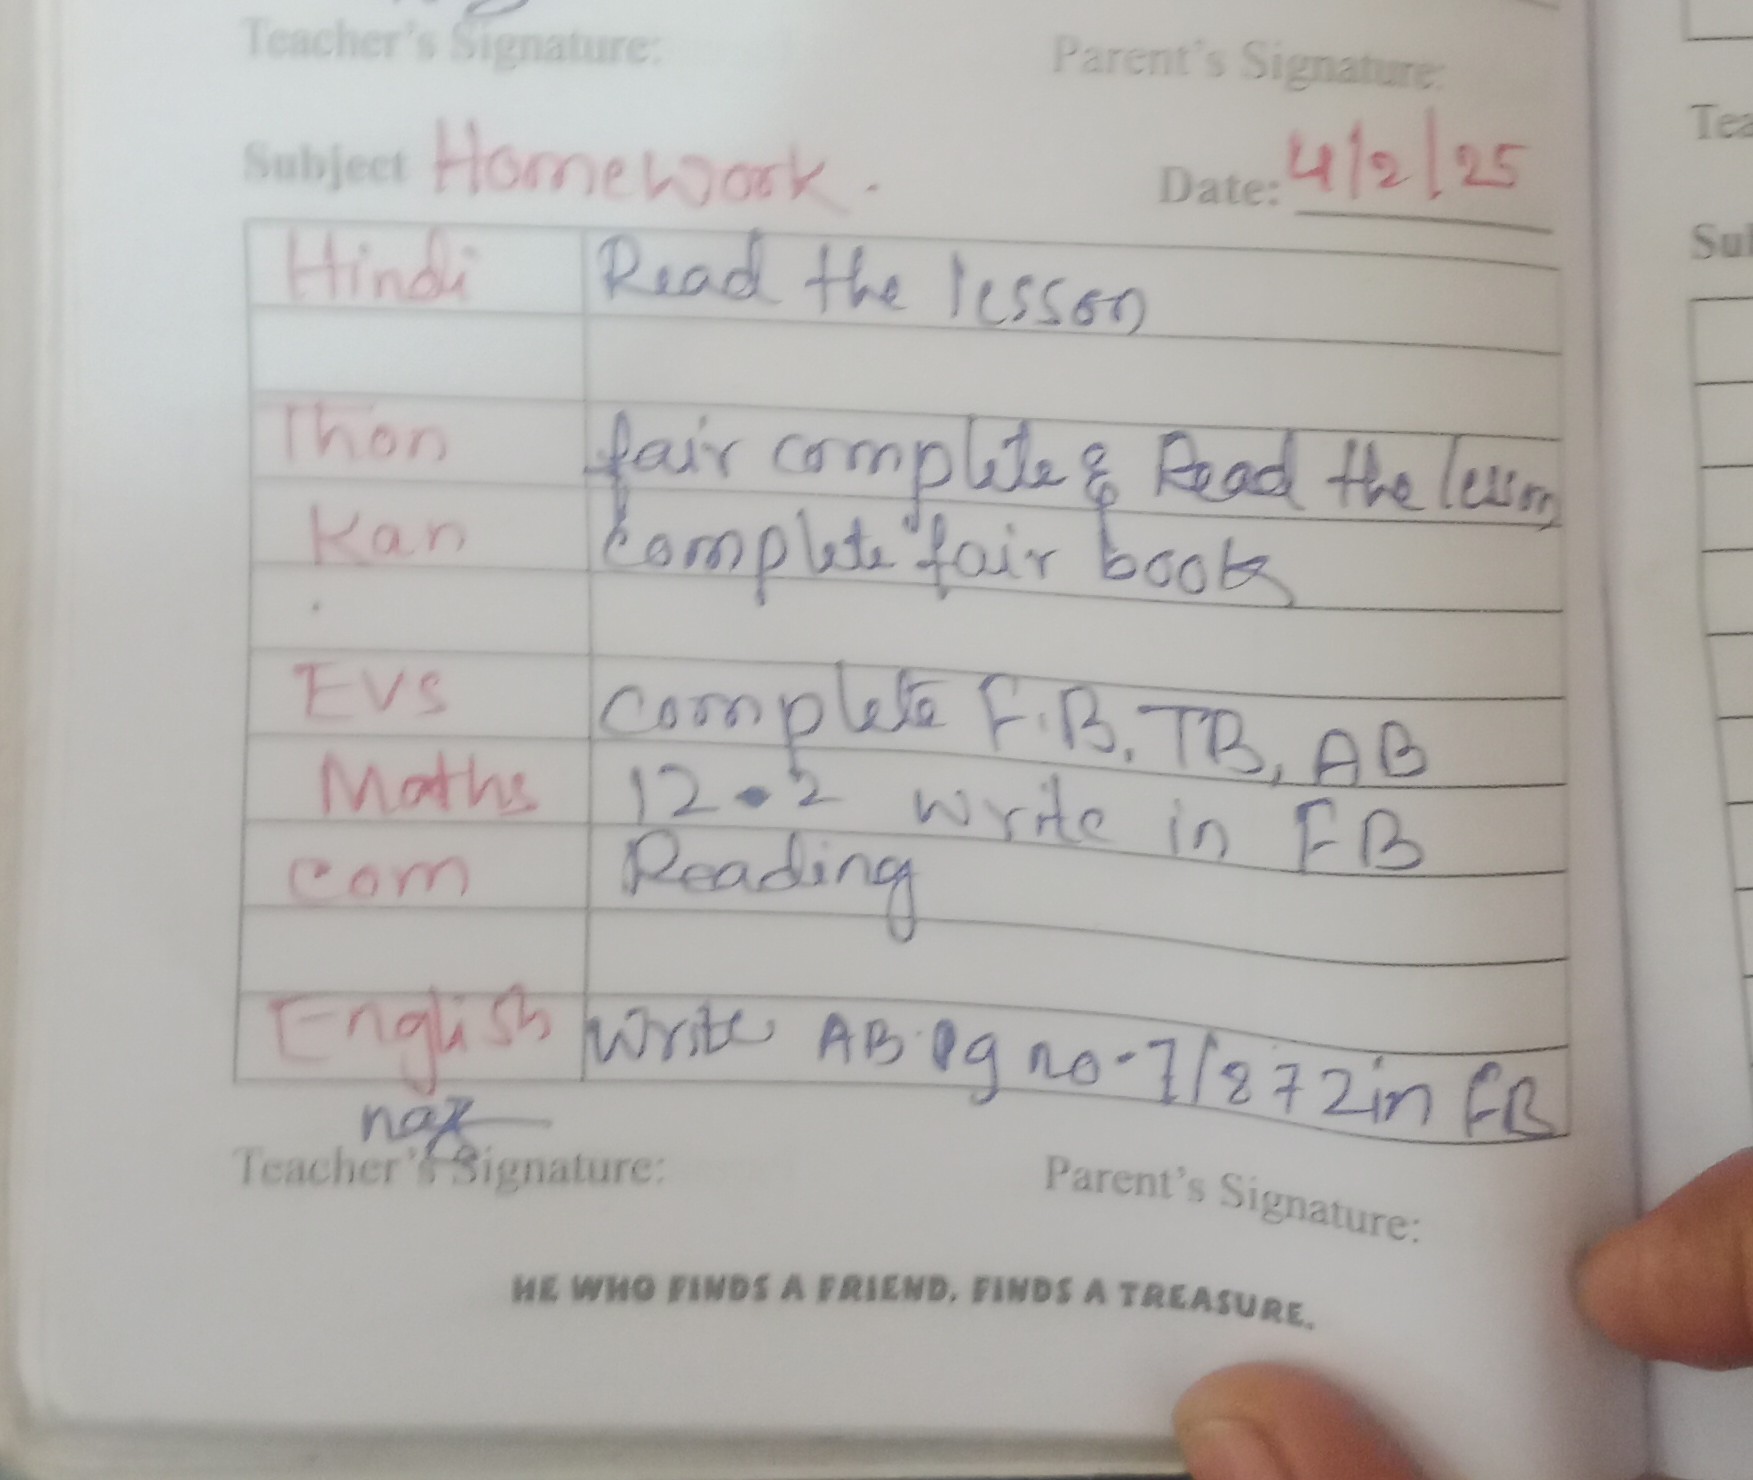 Teacher's Signature: Parent's Signature:
Subject Homework. Date: 4/2/25
Hindi Read the lesson
Thon fair complete & Read the lesson
Kan complete fair book
EVS complete F.B, TB, AB
Maths 12.2 write in FB
com Reading
English write AB pg no-71 & 72 in FB
naz
Teacher's Signature: Parent's Signature:
HE WHO FINDS A FRIEND, FINDS A TREASURE.
Tea
Su